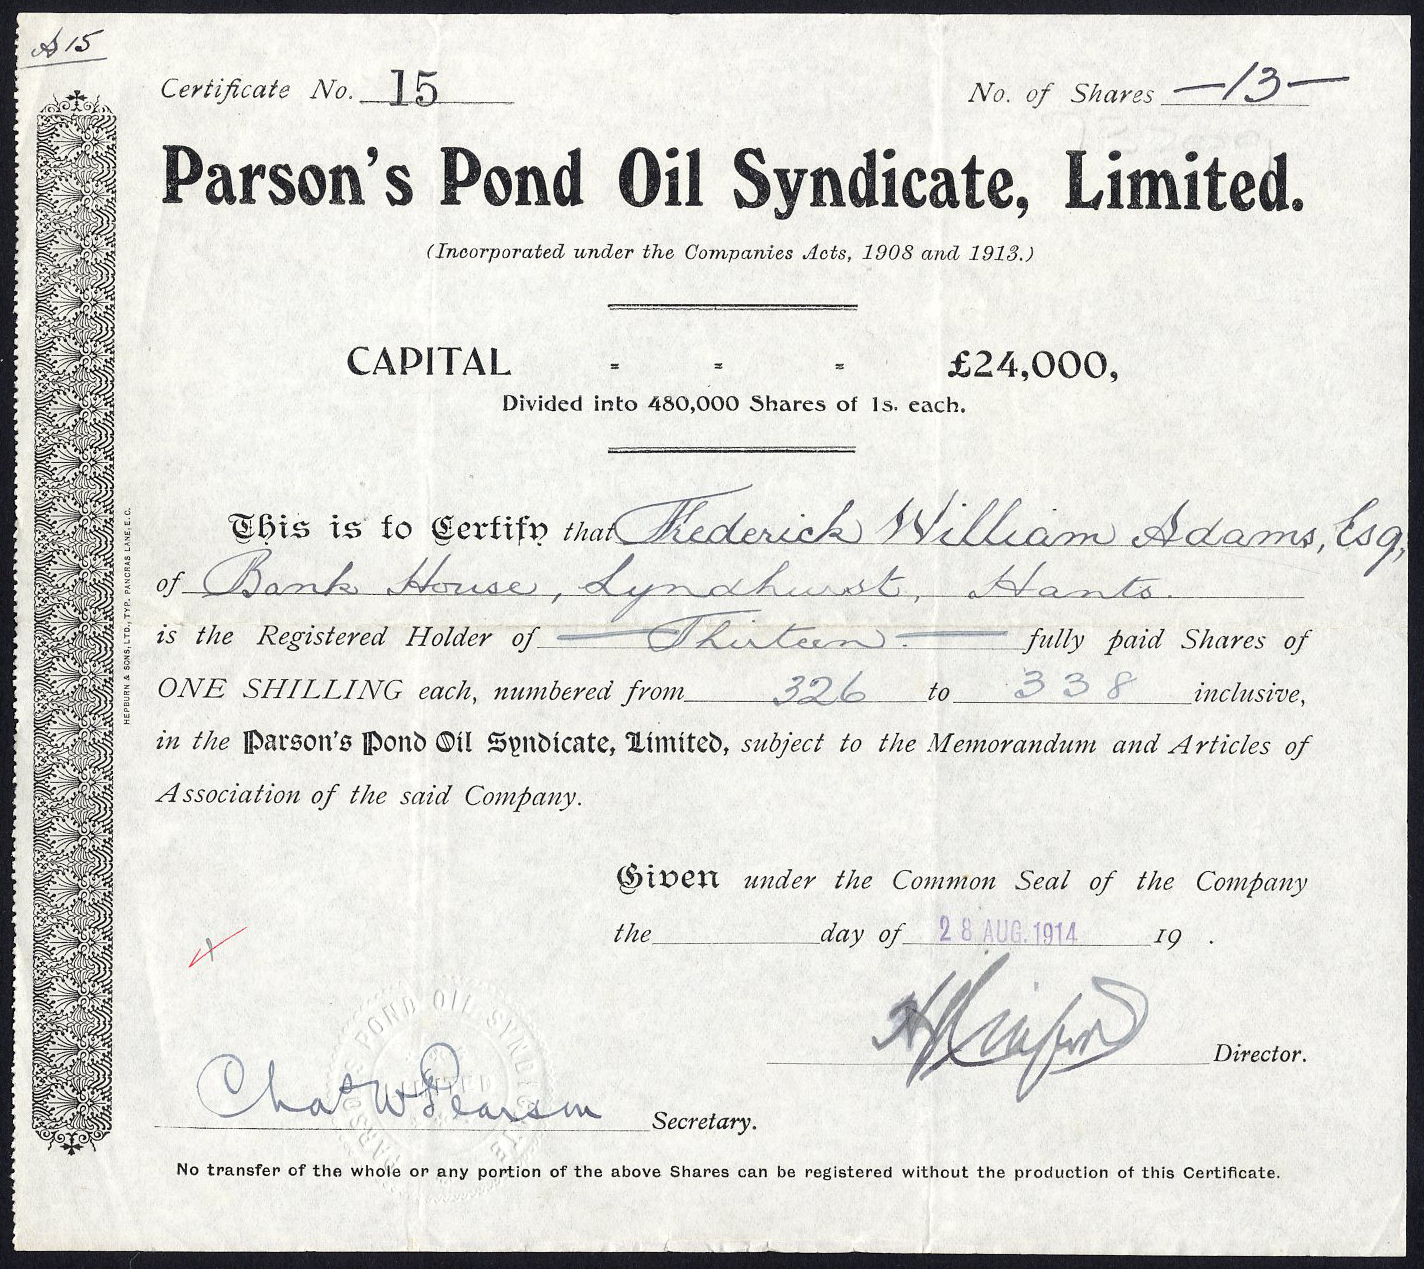 A 15
Certificate No. 15
No. of Shares —13—
Parson's Pond Oil Syndicate, Limited.
(Incorporated under the Companies Acts, 1908 and 1913.)
CAPITAL - - - £24,000,
Divided into 480,000 Shares of 1s. each.
This is to Certify that Frederick William Adams, Esq,
of Bank House, Lyndhurst, Hants.
is the Registered Holder of — Thirteen. — fully paid Shares of
ONE SHILLING each, numbered from 326 to 338 inclusive,
in the Parson's Pond Oil Syndicate, Limited, subject to the Memorandum and Articles of
Association of the said Company.
Given under the Common Seal of the Company
the day of 28 AUG. 1914 19 .
Director.
Chas W Pearson Secretary.
PARSONS POND OIL SYNDICATE
LIMITED
No transfer of the whole or any portion of the above Shares can be registered without the production of this Certificate.
HEPBURN & SONS, LTD., TYP. PANCRAS LANE, E.C.